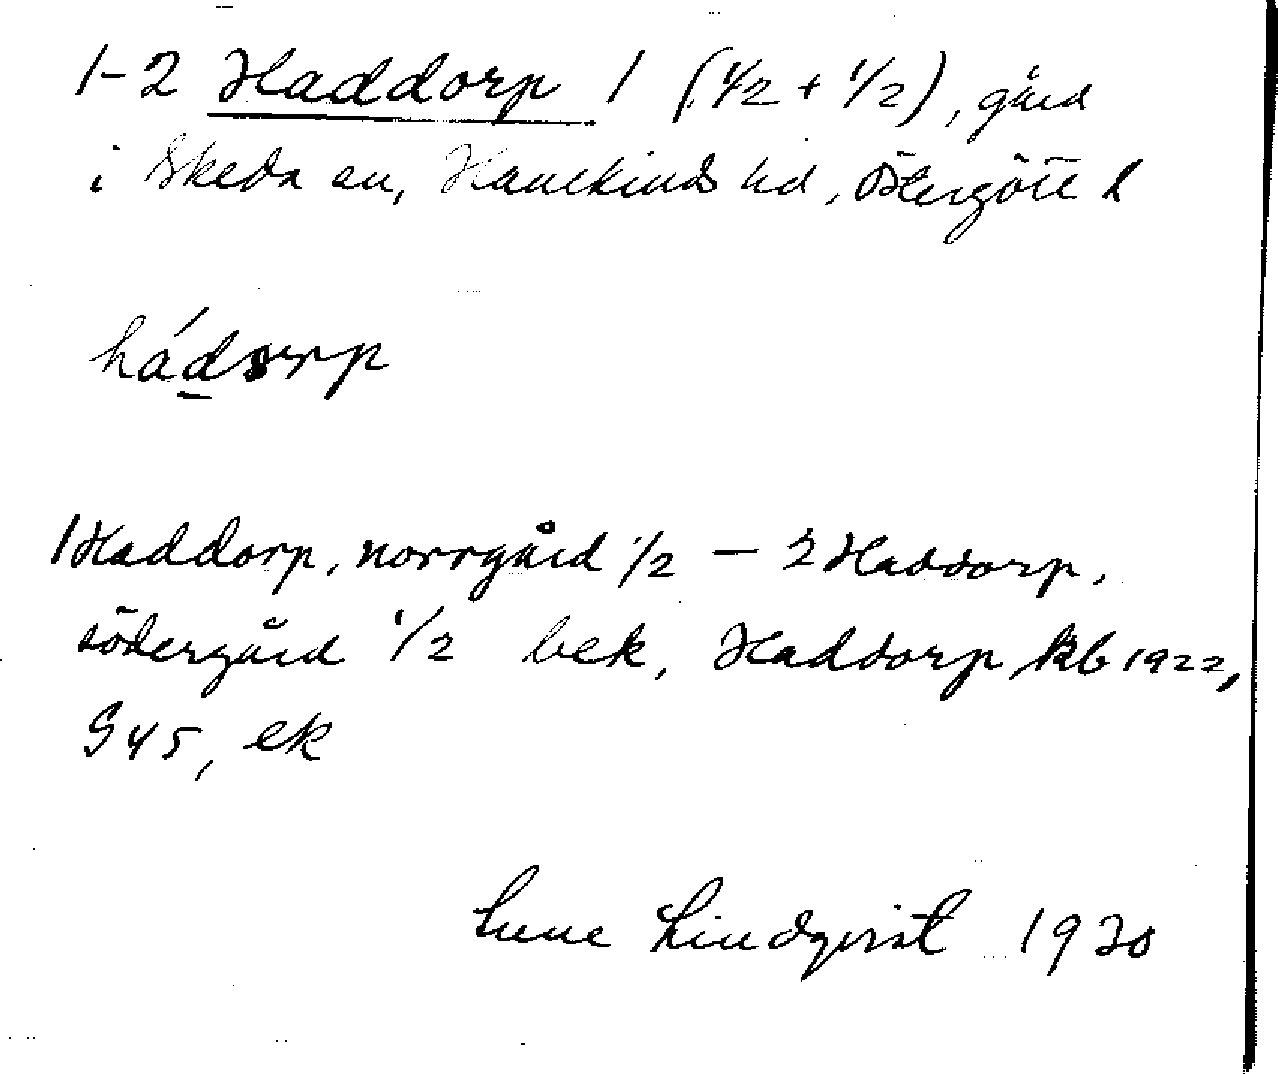 1-2 Haddorp 1 (1/2 + 1/2), gård
i Skeda sn, Hanekinds hd, Östergötl l
hádorp
1 Haddorp, norrgård 1/2 — 2 Haddorp,
södergård 1/2 bek, Haddorp kb 1922,
S 45, ek
Sune Lindqvist 1930